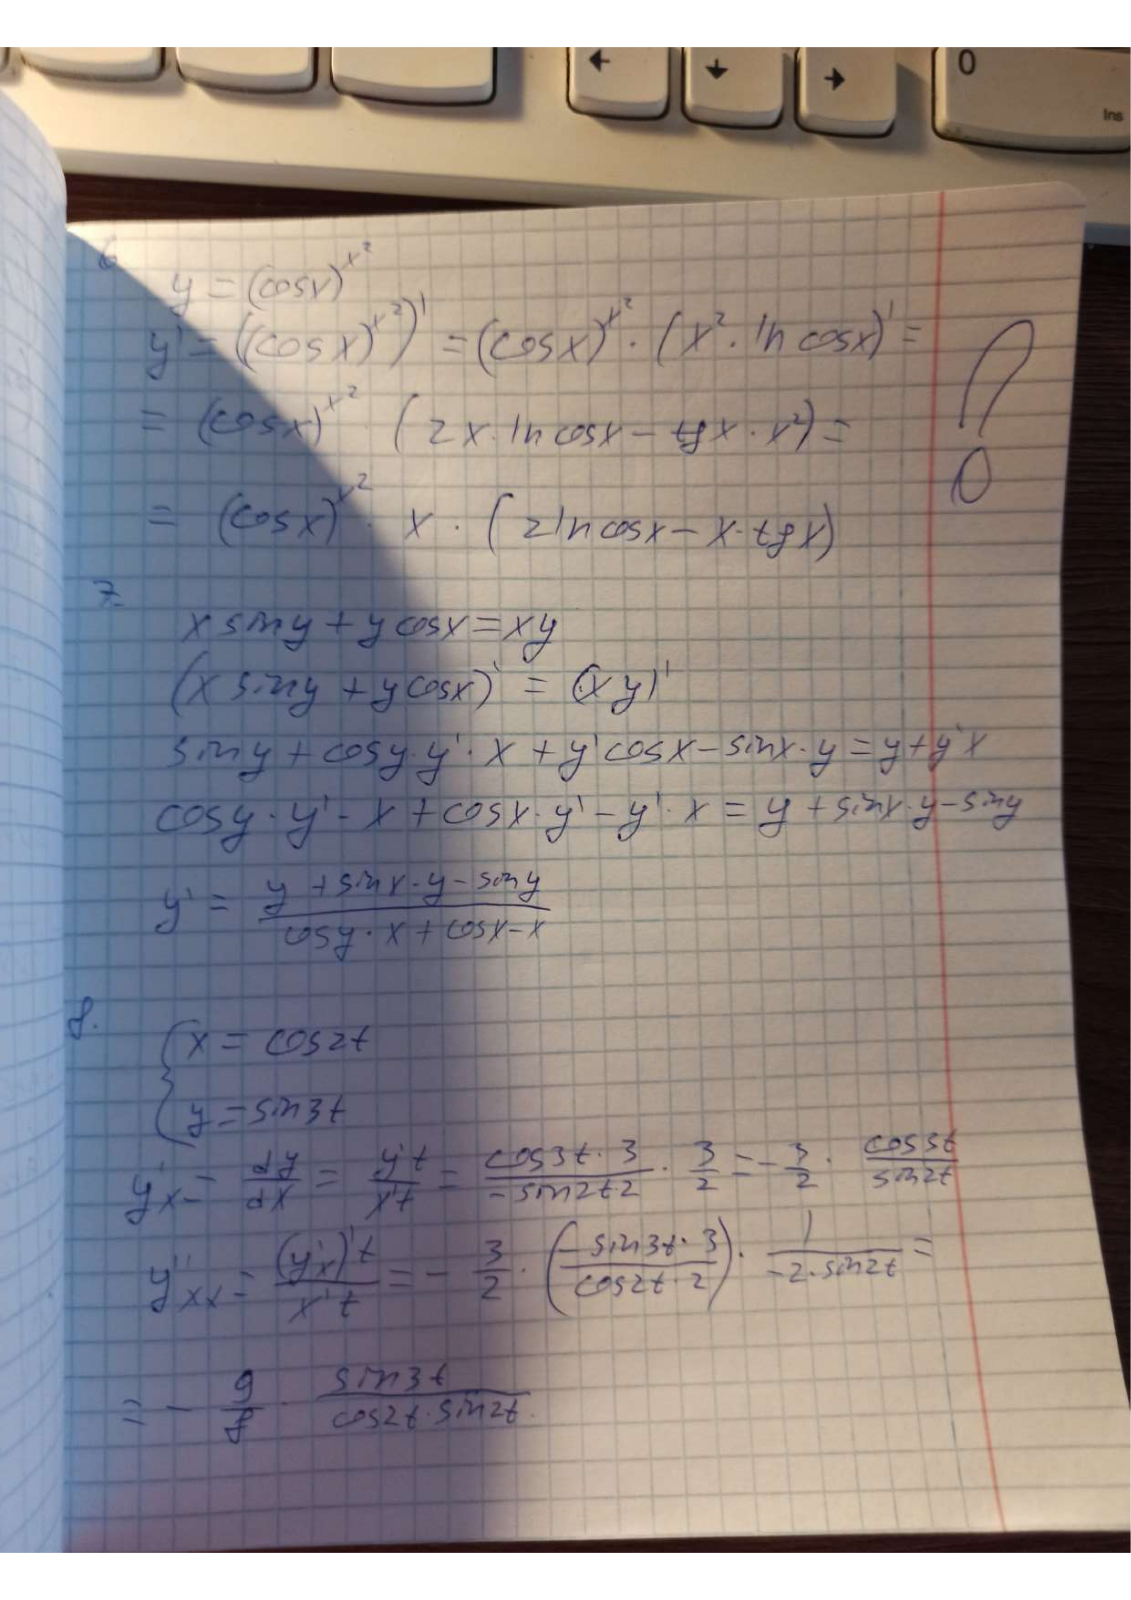 0
Ins
6
y = (cosx)^x²
y' = ((cosx)^x²)' = (cosx)^x² · (x² · ln cosx)' =
= (cosx)^x² · (2x · ln cosx - tgx · x²) =
= (cosx)^x² · x · (2 ln cosx - x · tgx)
7.
x siny + y cosx = xy
(x siny + y cosx)' = (xy)'
siny + cosy · y' · x + y' cosx - sinx · y = y + y'x
cosy · y' - x + cosx · y' - y' · x = y + sinx · y - siny
y' = (y + sinx · y - siny) / (cosy · x + cosx - x)
8.
{ x = cos2t
y = sin3t
y'x = dy/dx = y't/x't = (cos3t · 3)/(-sin2t·2) · 3/2 = - 3/2 · cos3t/sin2t
y''xx = (y'x)'t / x't = - 3/2 · ((-sin3t · 3)/(cos2t · 2)) · 1/(-2 · sin2t) =
= - 9/8 · sin3t/(cos2t · sin2t)